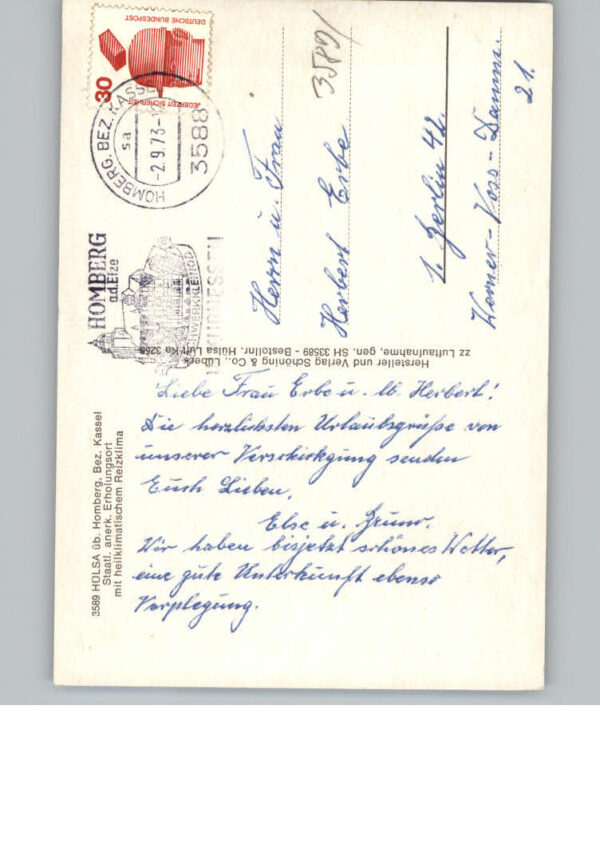 DEUTSCHE BUNDESPOST
30
JEDERZEIT SICHERHEIT
HOMBERG, BEZ. KASSEL
sa
-2.9.73-
3588
HOMBERG
a.d. Efze
3589/
Herrn u. Frau
Herbert Erbe
1. Berlin 42.
Werner-Voss-Damm.
21.
Hersteller und Verlag Schöning & Co., Lübeck
zz Luftaufnahme, gen. SH 33589 - Bestellnr. Hülsa Luft/Ka 3258
3589 HÜLSA üb. Homberg, Bez. Kassel
Staatl. anerk. Erholungsort
mit heilklimatischem Reizklima
Liebe Frau Erbe u. lb. Herbert!
Die herzlichsten Urlaubsgrüße von
unserer Verschickgung senden
Euch Lieben,
Else u. Bruno.
Wir haben bisjetzt schönes Wetter,
eine gute Unterkunft ebenso
Verplegung.